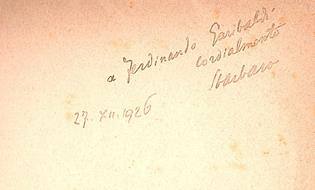 a Ferdinando Garibaldi.
cordialmente
Sbarbaro
27. XII. 1926